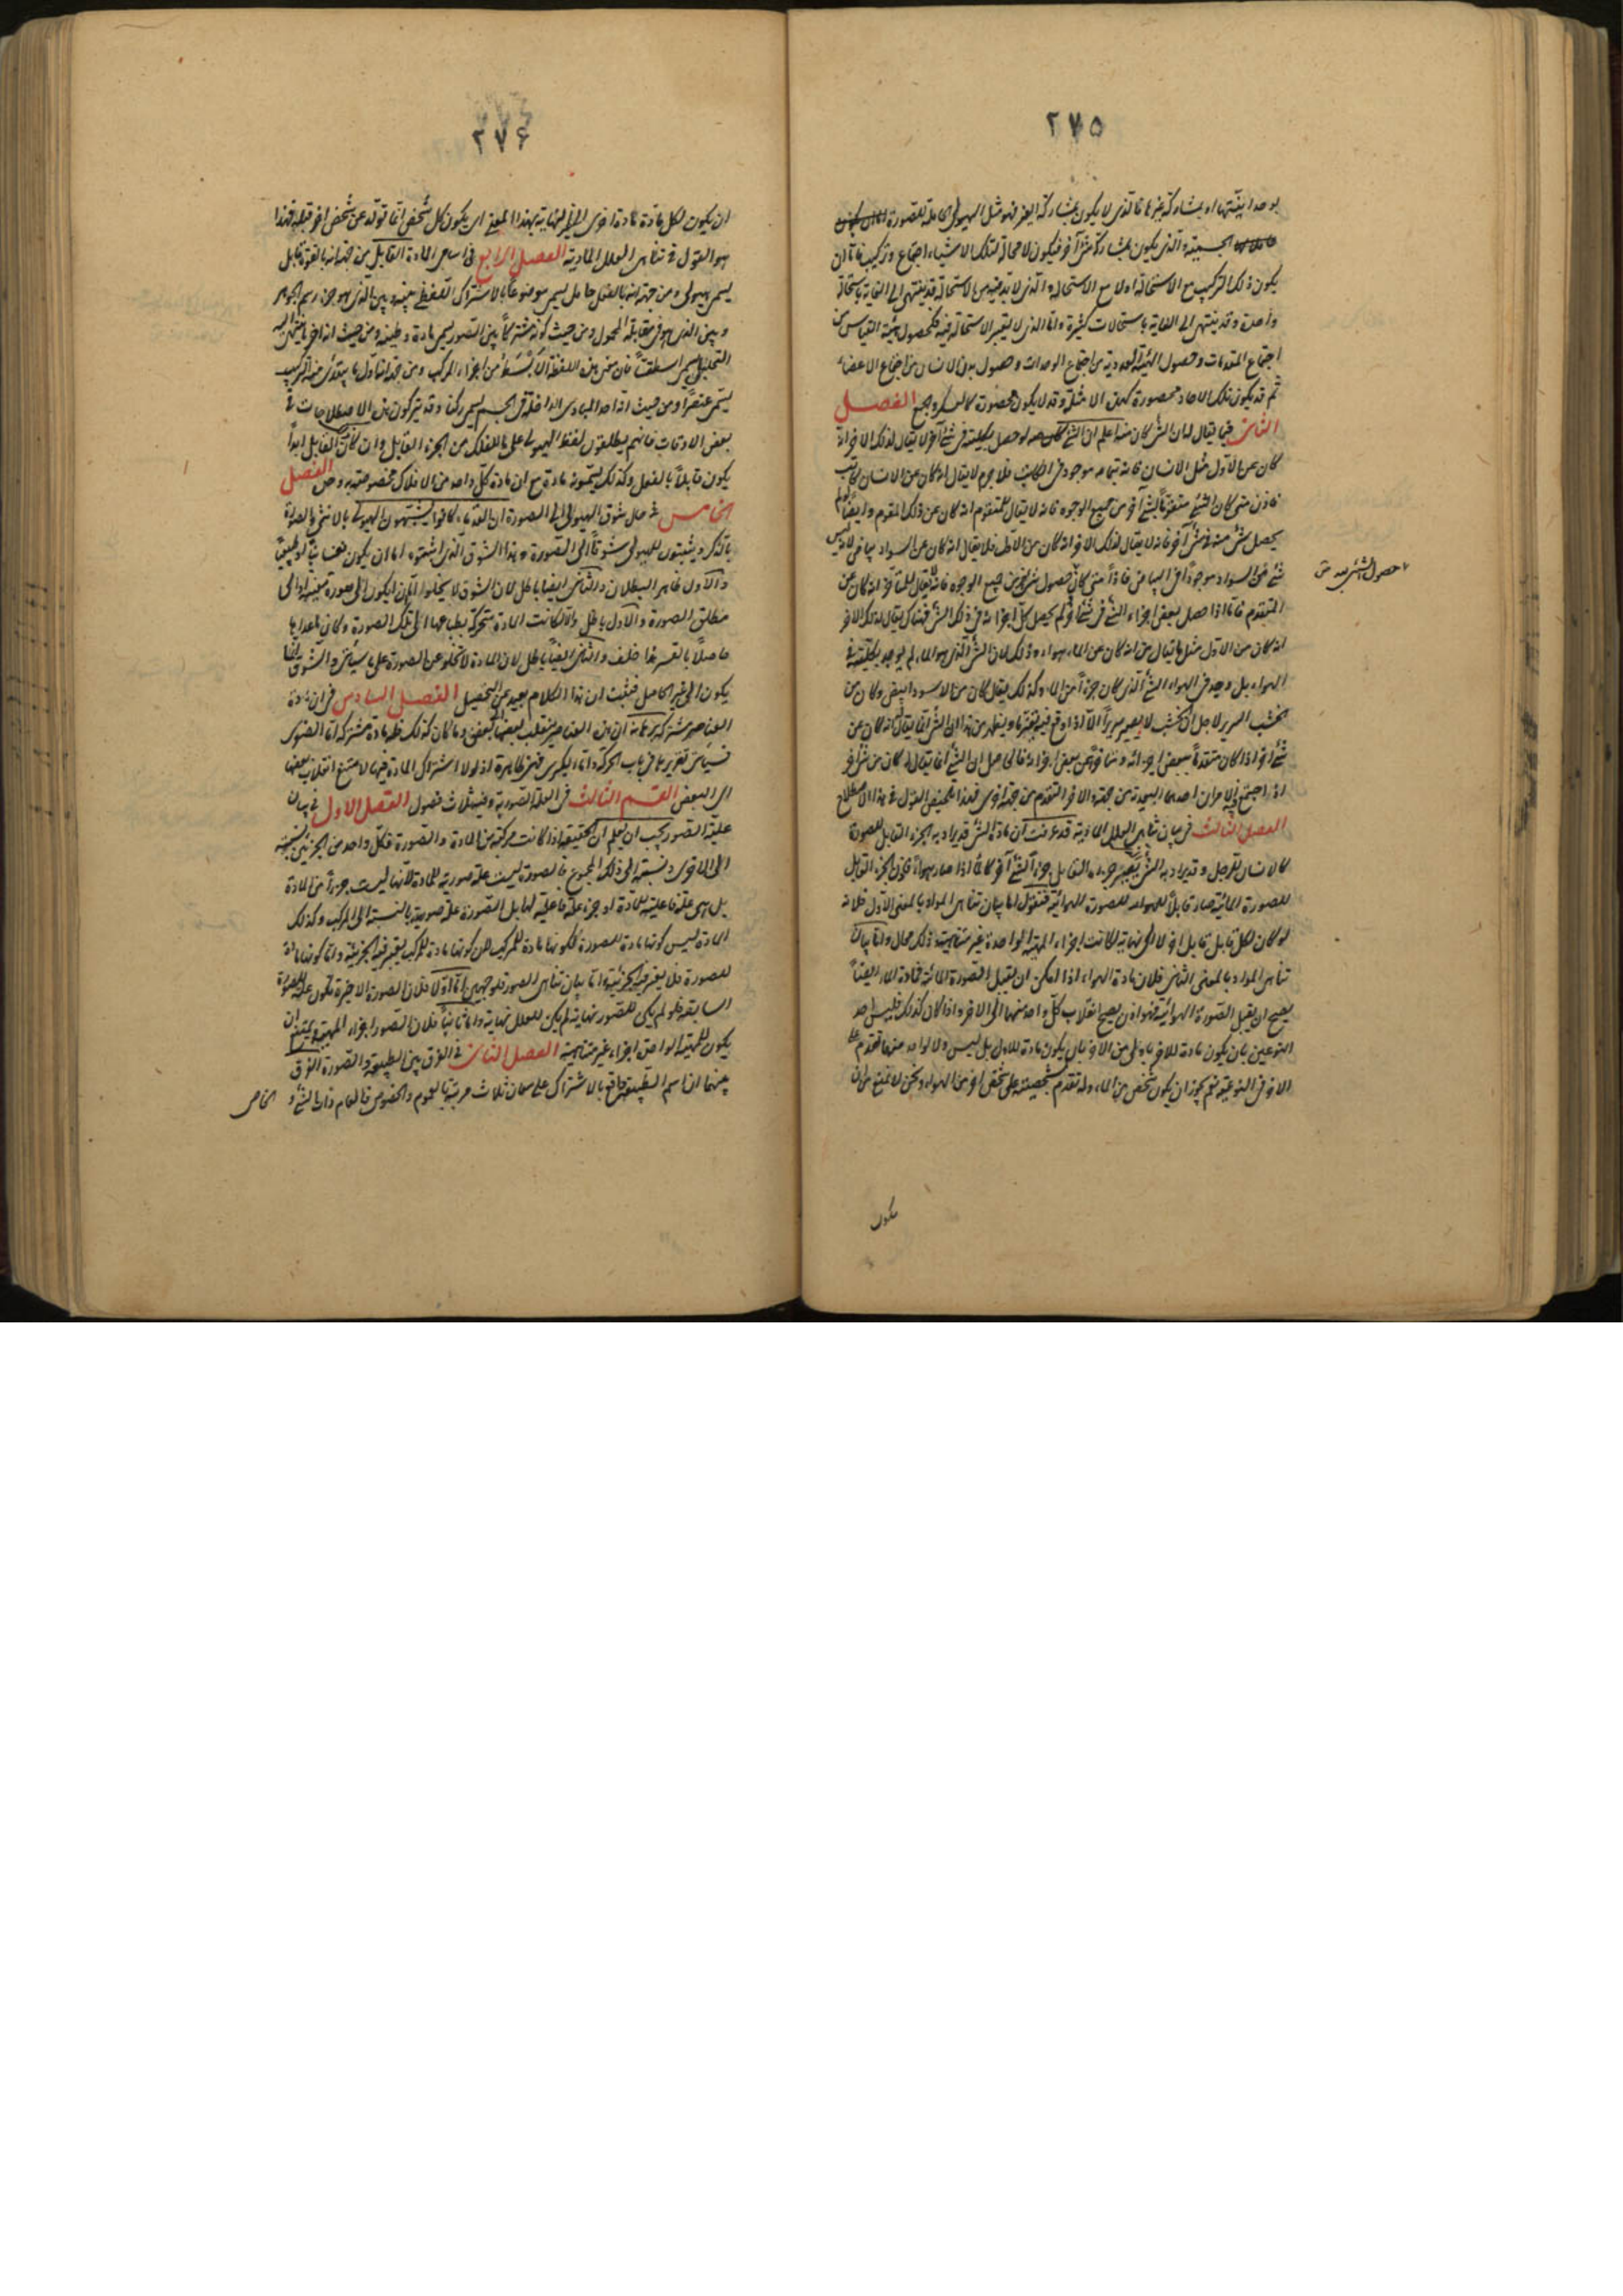 ٢٧٥
بوحدانيتها او بمشاركة غيرها فالذى لا يكون بمشاركة الغير فهو مثل الهيولى الحاملة للصورة
الجسمية والذى يكون بمشاركة شئ آخر فيكون لا محالة لتلك الاشياء اجتماع وتركيب فاما ان
يكون ذلك التركيب مع الاستحالة او لا مع الاستحالة والذى لا بد فيه من الاستحالة قد ينتهى الى الغاية باستحالة
واحدة وقد ينتهى الى الغاية باستحالات كثيرة واما الذى لا يعتبر الاستحالة فيه فكحصول هيئة القياس من
اجتماع المقدمات وحصول الهيئة العددية من اجتماع الوحدات وحصول بدن الانسان من اجتماع الاعضاء
ثم قد يكون تلك الآحاد محصورة كهذه الامثلة وقد لا يكون محصورة كالعسكر والجمع الفصل
الثانى فيما يقال له ان الشئ كان منه اعلم ان الشئ لو حصل بكليته فى شئ آخر لا يقال لذلك الآخر انه
كان عن الاول مثل الانسان فانه بتمامه موجود فى الكاتب فلا جرم لا يقال انه كان عن الانسان كاتب
فاذن متى كان الشئ متقوما بشئ آخر من جميع الوجوه فانه لا يقال للمتقوم انه كان عن ذلك المقوم وايضا لو لم
يحصل شئ منه فى شئ آخر فانه لا يقال لذلك الآخر انه كان من الاول فلا يقال انه كان عن السواد بياض لانه ليس
شئ من السواد موجودا فى البياض فاذا متى كان حصول شئ من جميع الوجوه فانه لا يقال للمتأخر انه كان عن
حصول الشئ بعد شئ
المتقدم فاما اذا حصل بعض اجزاء الشئ فى شئ آخر ولم يحصل كل اجزائه فى ذلك الشئ فهناك يقال لذلك الآخر
انه كان من الاول مثل ما يقال من انه كان عن الماء هواء وذلك لان الشئ الذى هو الماء لم يوجد بكليته فى
الهواء بل وجد فى الهواء الشئ الذى كان جزءا من الماء وكذلك يقال كان من الاسود ابيض وكان من
الخشب السرير لاجل ان الخشب لا يصير سريرا الا اذا وقع فيه تغير ما ويظهر من هذا ان الشئ انما يقال انه كان عن
شئ آخر اذا كان متقوما ببعض اجزائه ومتأخرا عن بعض اجزائه فالحاصل ان الشئ انما يقال له كان من شئ آخر
اذا اجتمع فيه امران احدهما البعدية من جهة والآخر التقدم من جهة اخرى فهذا تلخيص القول فى هذا الاصطلاح
الفصل الثالث فى بيان تناهى العلل المادية قد عرفت ان مادة الشئ قد يراد به الجزء القابل للصورة
كالانسان للرجل وقد يراد به الشئ الذى يصير جزءه القابل جزءا لشئ آخر كالماء اذا صار هواء فان الجزء القابل
للصورة المائية صار قابلا للهواء للصورة الهوائية فنقول اما بيان تناهى المواد بالمعنى الاول فلانه
لو كان لكل قابل قابل آخر لا الى نهاية لكانت اجزاء الماهية الواحدة غير متناهية وذلك محال واما بيان
تناهى المواد بالمعنى الثانى فلان مادة الهواء اذا امكن ان يقبل الصورة المائية فمادة الماء ايضا
يصح ان يقبل الصورة الهوائية فهو اذن يصح انقلاب كل واحد منهما الى الآخر واذا كان كذلك فليس احد
النوعين بان يكون مادة للآخر باولى من الآخر بان يكون مادة للاول بل ليس ولا لواحد منهما تقدم على
الآخر فى النوعية نعم يجوز ان يكون شخص من الماء له تقدم بشخصيته على شخص آخر من الهواء ونحن لا نمنع من ان
يكون
٢٧۶
ان يكون لكل مادة مادة اخرى الى غير النهاية بهذا المعنى اى يكون كل شخص انما تولد عن شخص آخر قبله فهذا
هو القول فى تناهى العلل المادية الفصل الرابع فى اسامى المادة القابل من جهة انه بالقوة قابل
يسمى هيولى ومن جهة انه بالفعل حامل يسمى موضوعا بالاشتراك اللفظى بينه وبين الذى هو جزء رسم الجوهر
وبين الذى هو فى مقابلة المحمول ومن حيث كونه مشتركا بين الصور يسمى مادة وطينة ومن حيث انه آخر ما ينتهى اليه
التحليل يسمى اسطقسا فان معنى هذه اللفظة الابسط من اجزاء المركب ومن جهة انه اول ما يبتدئ منه التركيب
يسمى عنصرا ومن حيث انه احد المبادى الداخلة فى الجسم يسمى ركنا وقد يتركون هذه الاصطلاحات فى
بعض الاوقات فانهم يطلقون لفظ الهيولى على ما للفلك من الجزء القابل وان كان القابل ابدا
يكون قابلا بالفعل وكذلك يسمونه مادة مع ان مادة كل واحد من الافلاك مخصوصة به وحده الفصل
الخامس فى حال شوق الهيولى الى الصورة ان القدماء كانوا يشبهون الهيولى بالانثى والصورة
بالذكر ويثبتون للهيولى شوقا الى الصورة وهذا الشوق الذى اثبتوه اما ان يكون نفسانيا او طبيعيا
والاول ظاهر البطلان والثانى ايضا باطل لان الشوق لا يخلو اما ان يكون الى صورة معينة او الى
مطلق الصورة والاول باطل والا لكانت المادة متحركة بطباعها الى تلك الصورة وكان ما عداها
حاصلا بالقسر هذا خلف والثانى ايضا باطل لان المادة لا تخلو عن الصورة على ما سيأتى والشوق انما
يكون الى غير الحاصل فثبت ان هذا الكلام بعيد عن التحصيل الفصل السادس فى ان مادة
العناصر مشتركة برهانه ان هذه العناصر ينقلب بعضها الى بعض وما كان كذلك فله مادة مشتركة اما الصغرى
فسيأتى تقريرها فى باب الحركة واما الكبرى فهى ظاهرة اذ لولا اشتراك المادة فيها لامتنع انقلاب بعضها
الى البعض القسم الثالث فى العلة الصورية وفيه ثلاث فصول الفصل الاول فى بيان
علية الصور يجب ان يعلم ان الحقيقة اذا كانت مركبة من المادة والصورة فكل واحد من الجزئين نسبته
الى الآخر ونسبته الى ذلك المجموع فالصورة ليست علة صورية للمادة لانها ليست جزءا من المادة
بل هى علة فاعلية للمادة او جزء علة فاعلية لها بل الصورة علة صورية بالنسبة الى المركب وكذلك
المادة ليس كونها مادة للصورة ككونها مادة للمركب لان كونها مادة للمركب يعتبر فيه الجزئية واما كونها مادة
للصورة فلا يعتبر فيه الجزئية واما بيان تناهى الصور فلوجهين اما اولا فلان الصورة الاخيرة تكون علة للصورة
السابقة فلو لم يكن للصور نهاية لم يكن للعلل نهاية واما ثانيا فلان الصور اجزاء الماهية ويمتنع ان
يكون للماهية الواحدة اجزاء غير متناهية الفصل الثانى فى الفرق بين الطبيعة والصورة الفرق
بينهما ان اسم الطبيعة واقع بالاشتراك على معان ثلاث مرتبة بالعموم والخصوص فالعام ذات الشئ و
الخاص